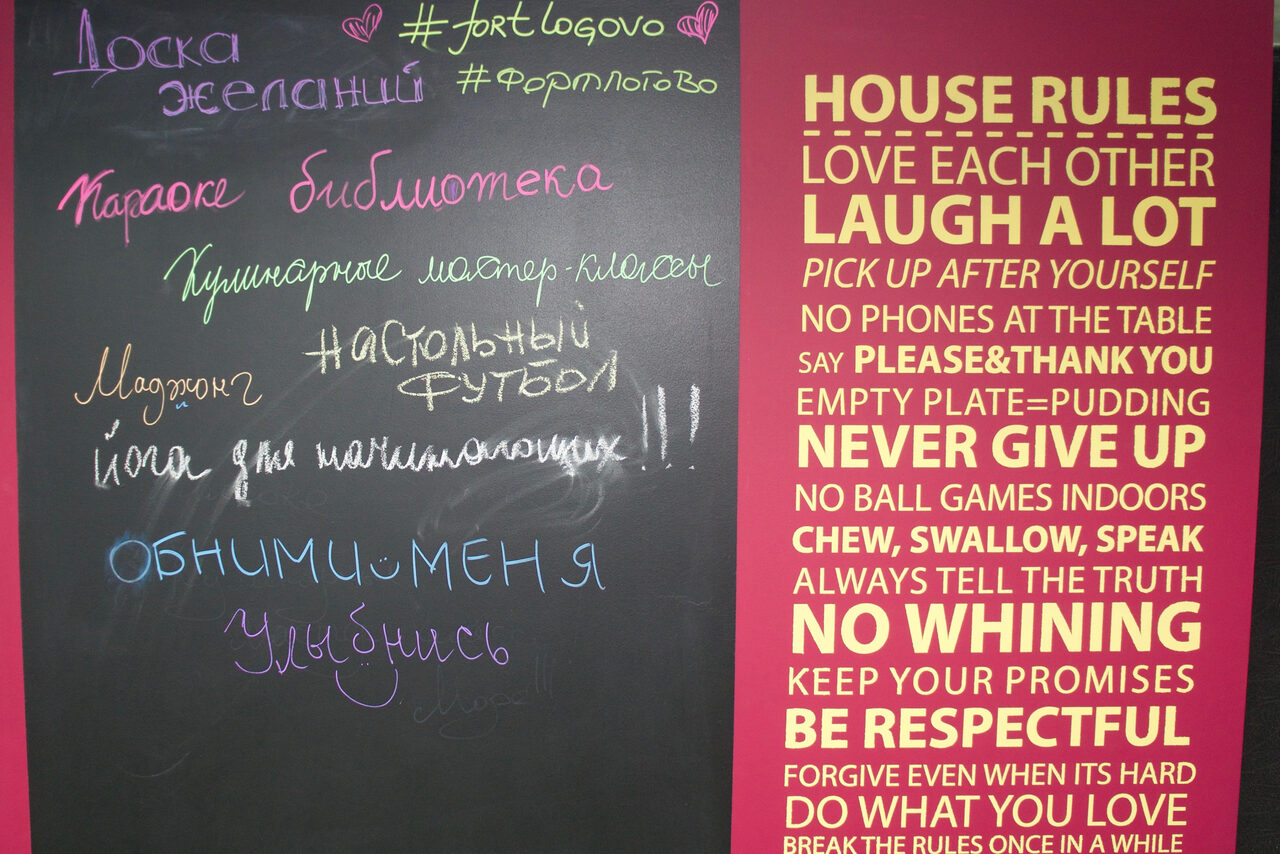 Доска
желаний
#fortlogovo
#Фортлогово
Караоке библиотека
Кулинарные мастер-классы
Настольный
футбол
Маджонг
йога для начинающих!!!
ОБНИМИ МЕНЯ
Улыбнись
HOUSE RULES
LOVE EACH OTHER
LAUGH A LOT
PICK UP AFTER YOURSELF
NO PHONES AT THE TABLE
SAY PLEASE&THANK YOU
EMPTY PLATE=PUDDING
NEVER GIVE UP
NO BALL GAMES INDOORS
CHEW, SWALLOW, SPEAK
ALWAYS TELL THE TRUTH
NO WHINING
KEEP YOUR PROMISES
BE RESPECTFUL
FORGIVE EVEN WHEN ITS HARD
DO WHAT YOU LOVE
BREAK THE RULES ONCE IN A WHILE